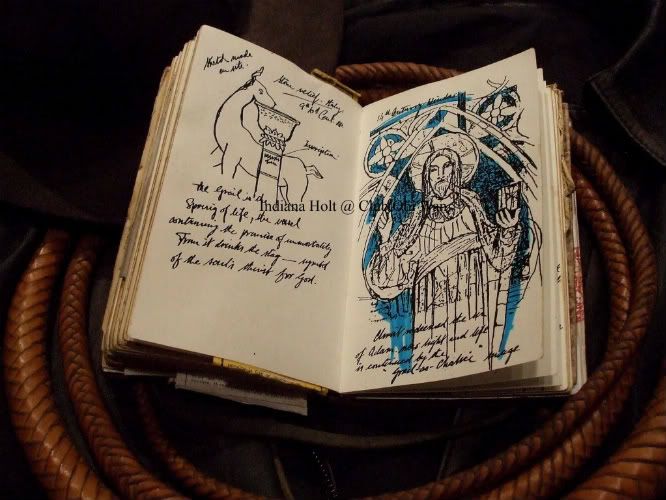 Sketch made
on site.
Stone relief. Italy
9th Cent. AD
Inscription:
the Grail is a
Spring of life, the vessel
containing the promise of immortality
From it drinks the stag — symbol
of the soul's thirst for God.
Indiana Holt @
Century Window
Christ redeemed the sin
of Adam new light and life
is contained by the
"Grail-as-Chalice" image